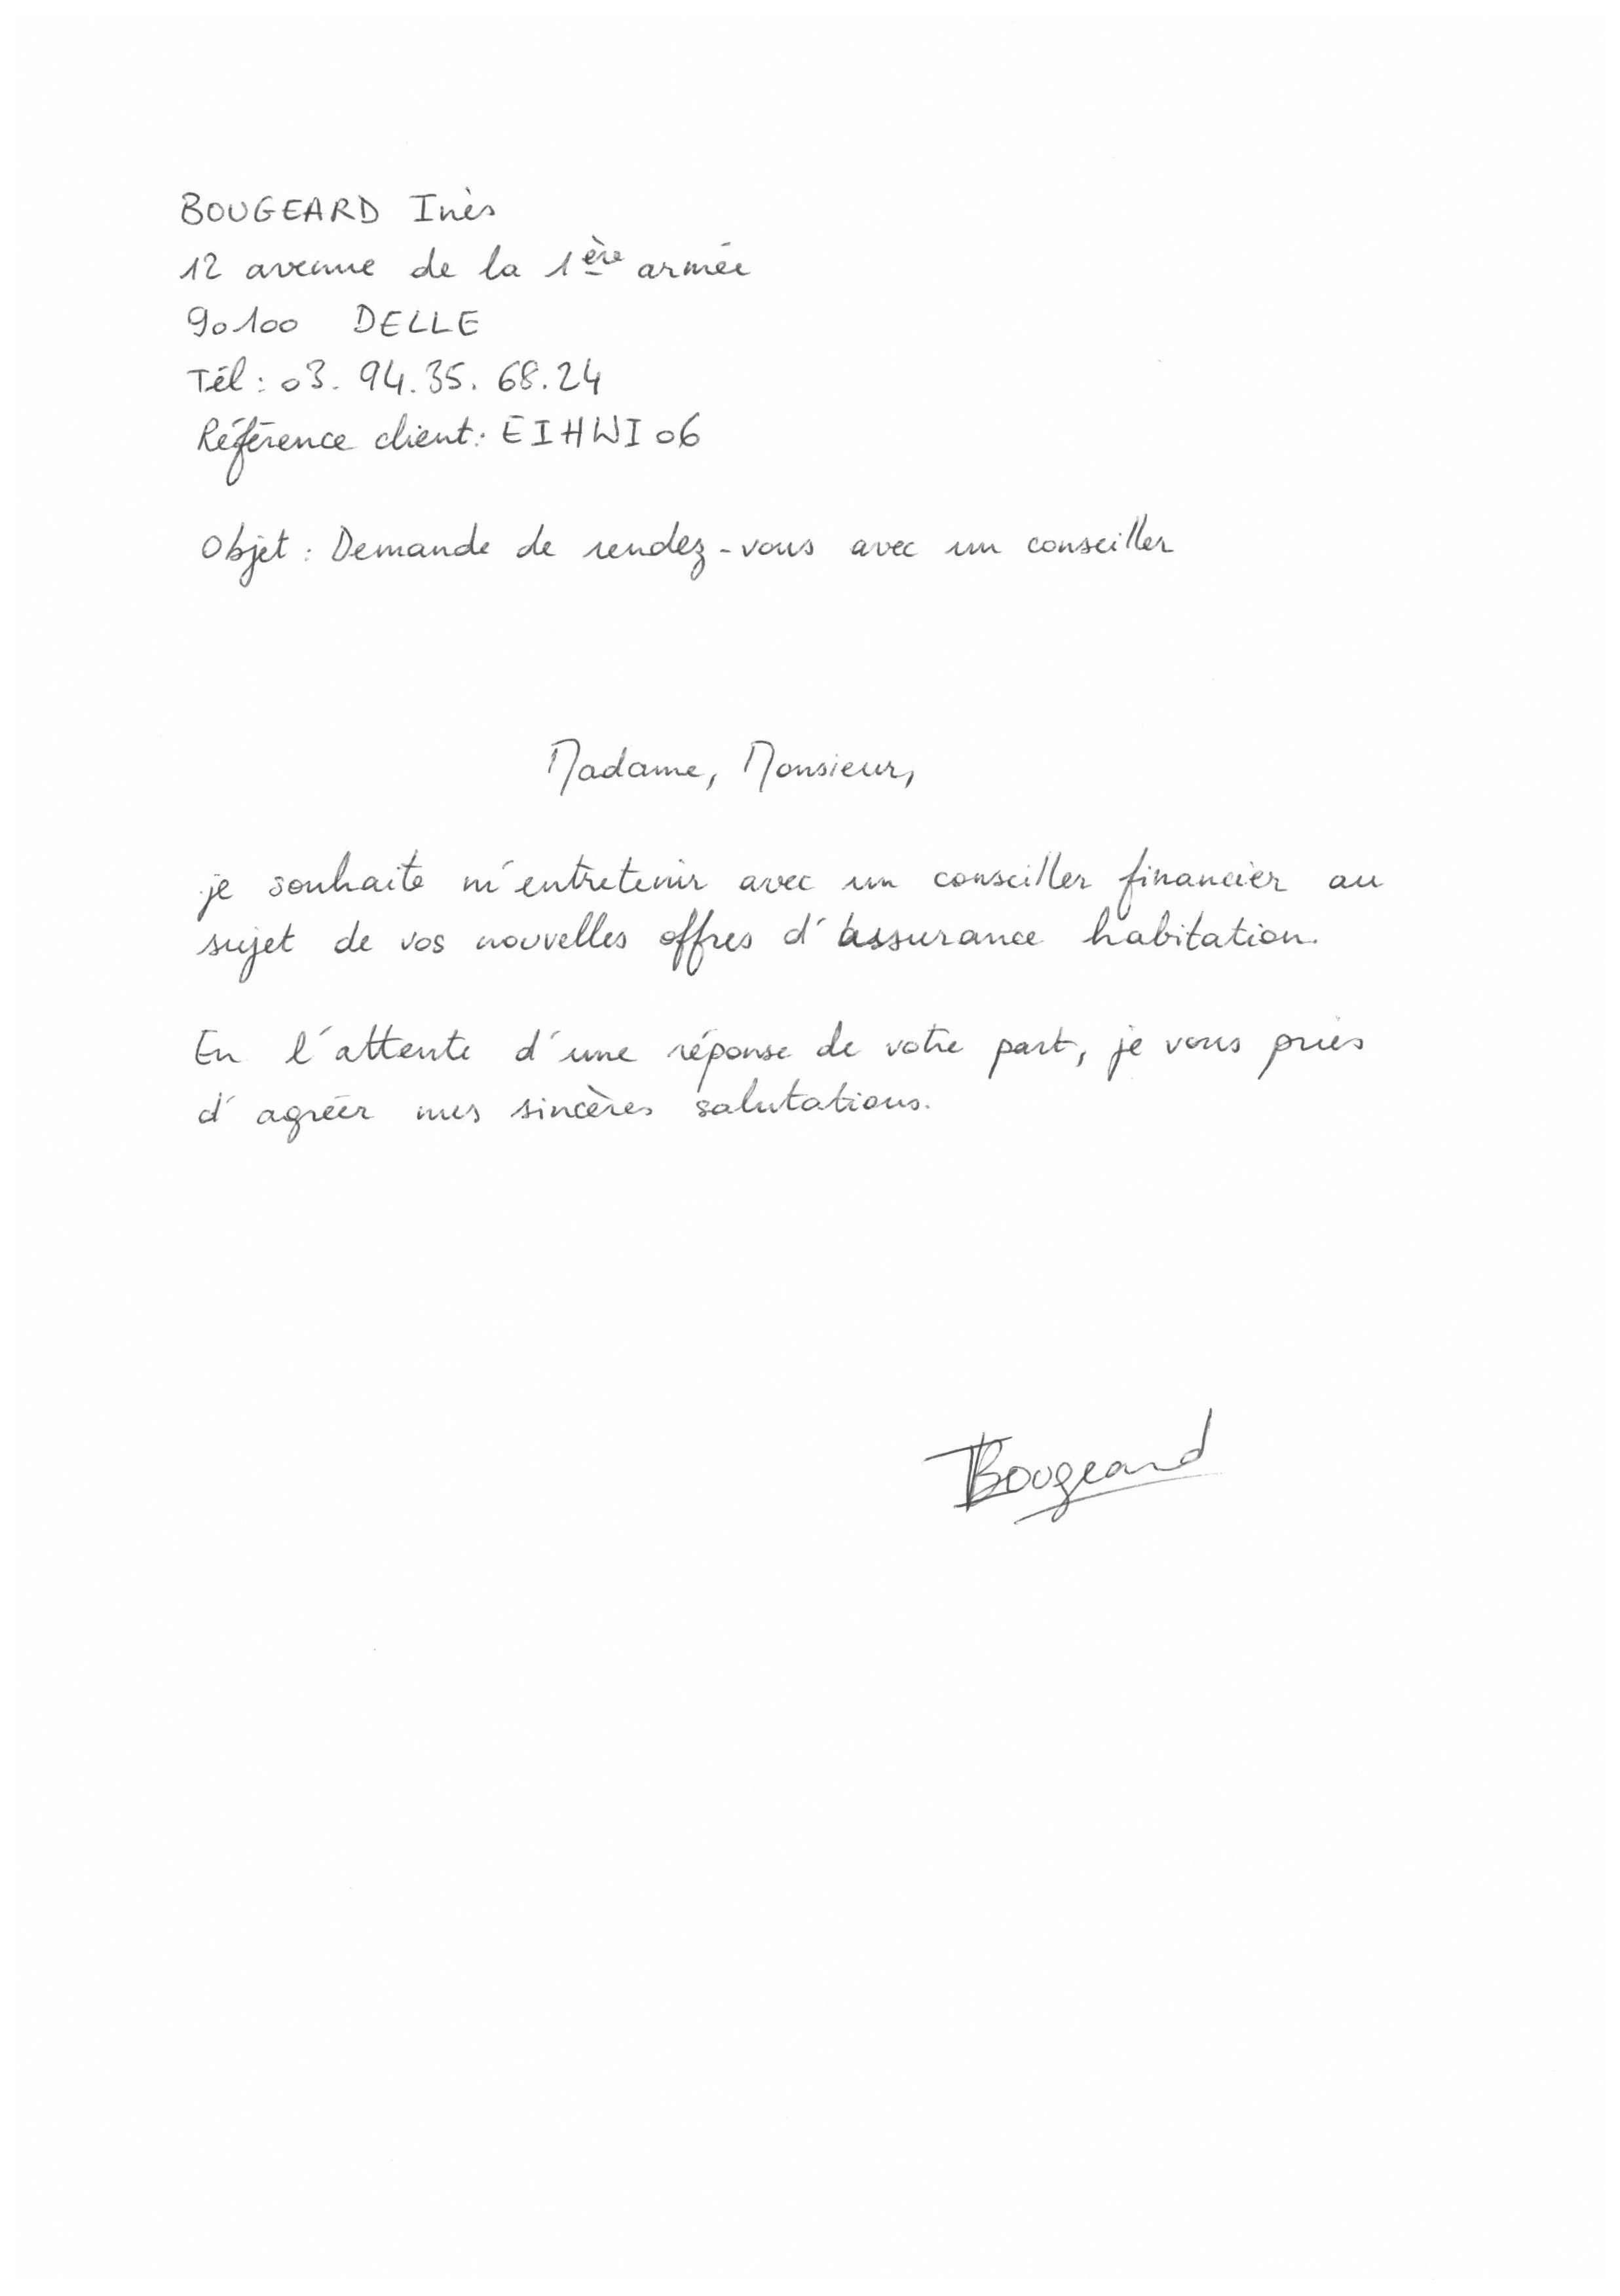 BOUGEARD Inès
12 avenue de la 1ère armée
90100 DELLE
Tél : 03. 94. 35. 68. 24
Référence client : EIHWI06
Objet : Demande de rendez-vous avec un conseiller
Madame, Monsieur,
je souhaite m'entretenir avec un conseiller financier au
sujet de vos nouvelles offres d'assurance habitation.
En l'attente d'une réponse de votre part, je vous pries
d'agréer mes sincères salutations.
Bougeard